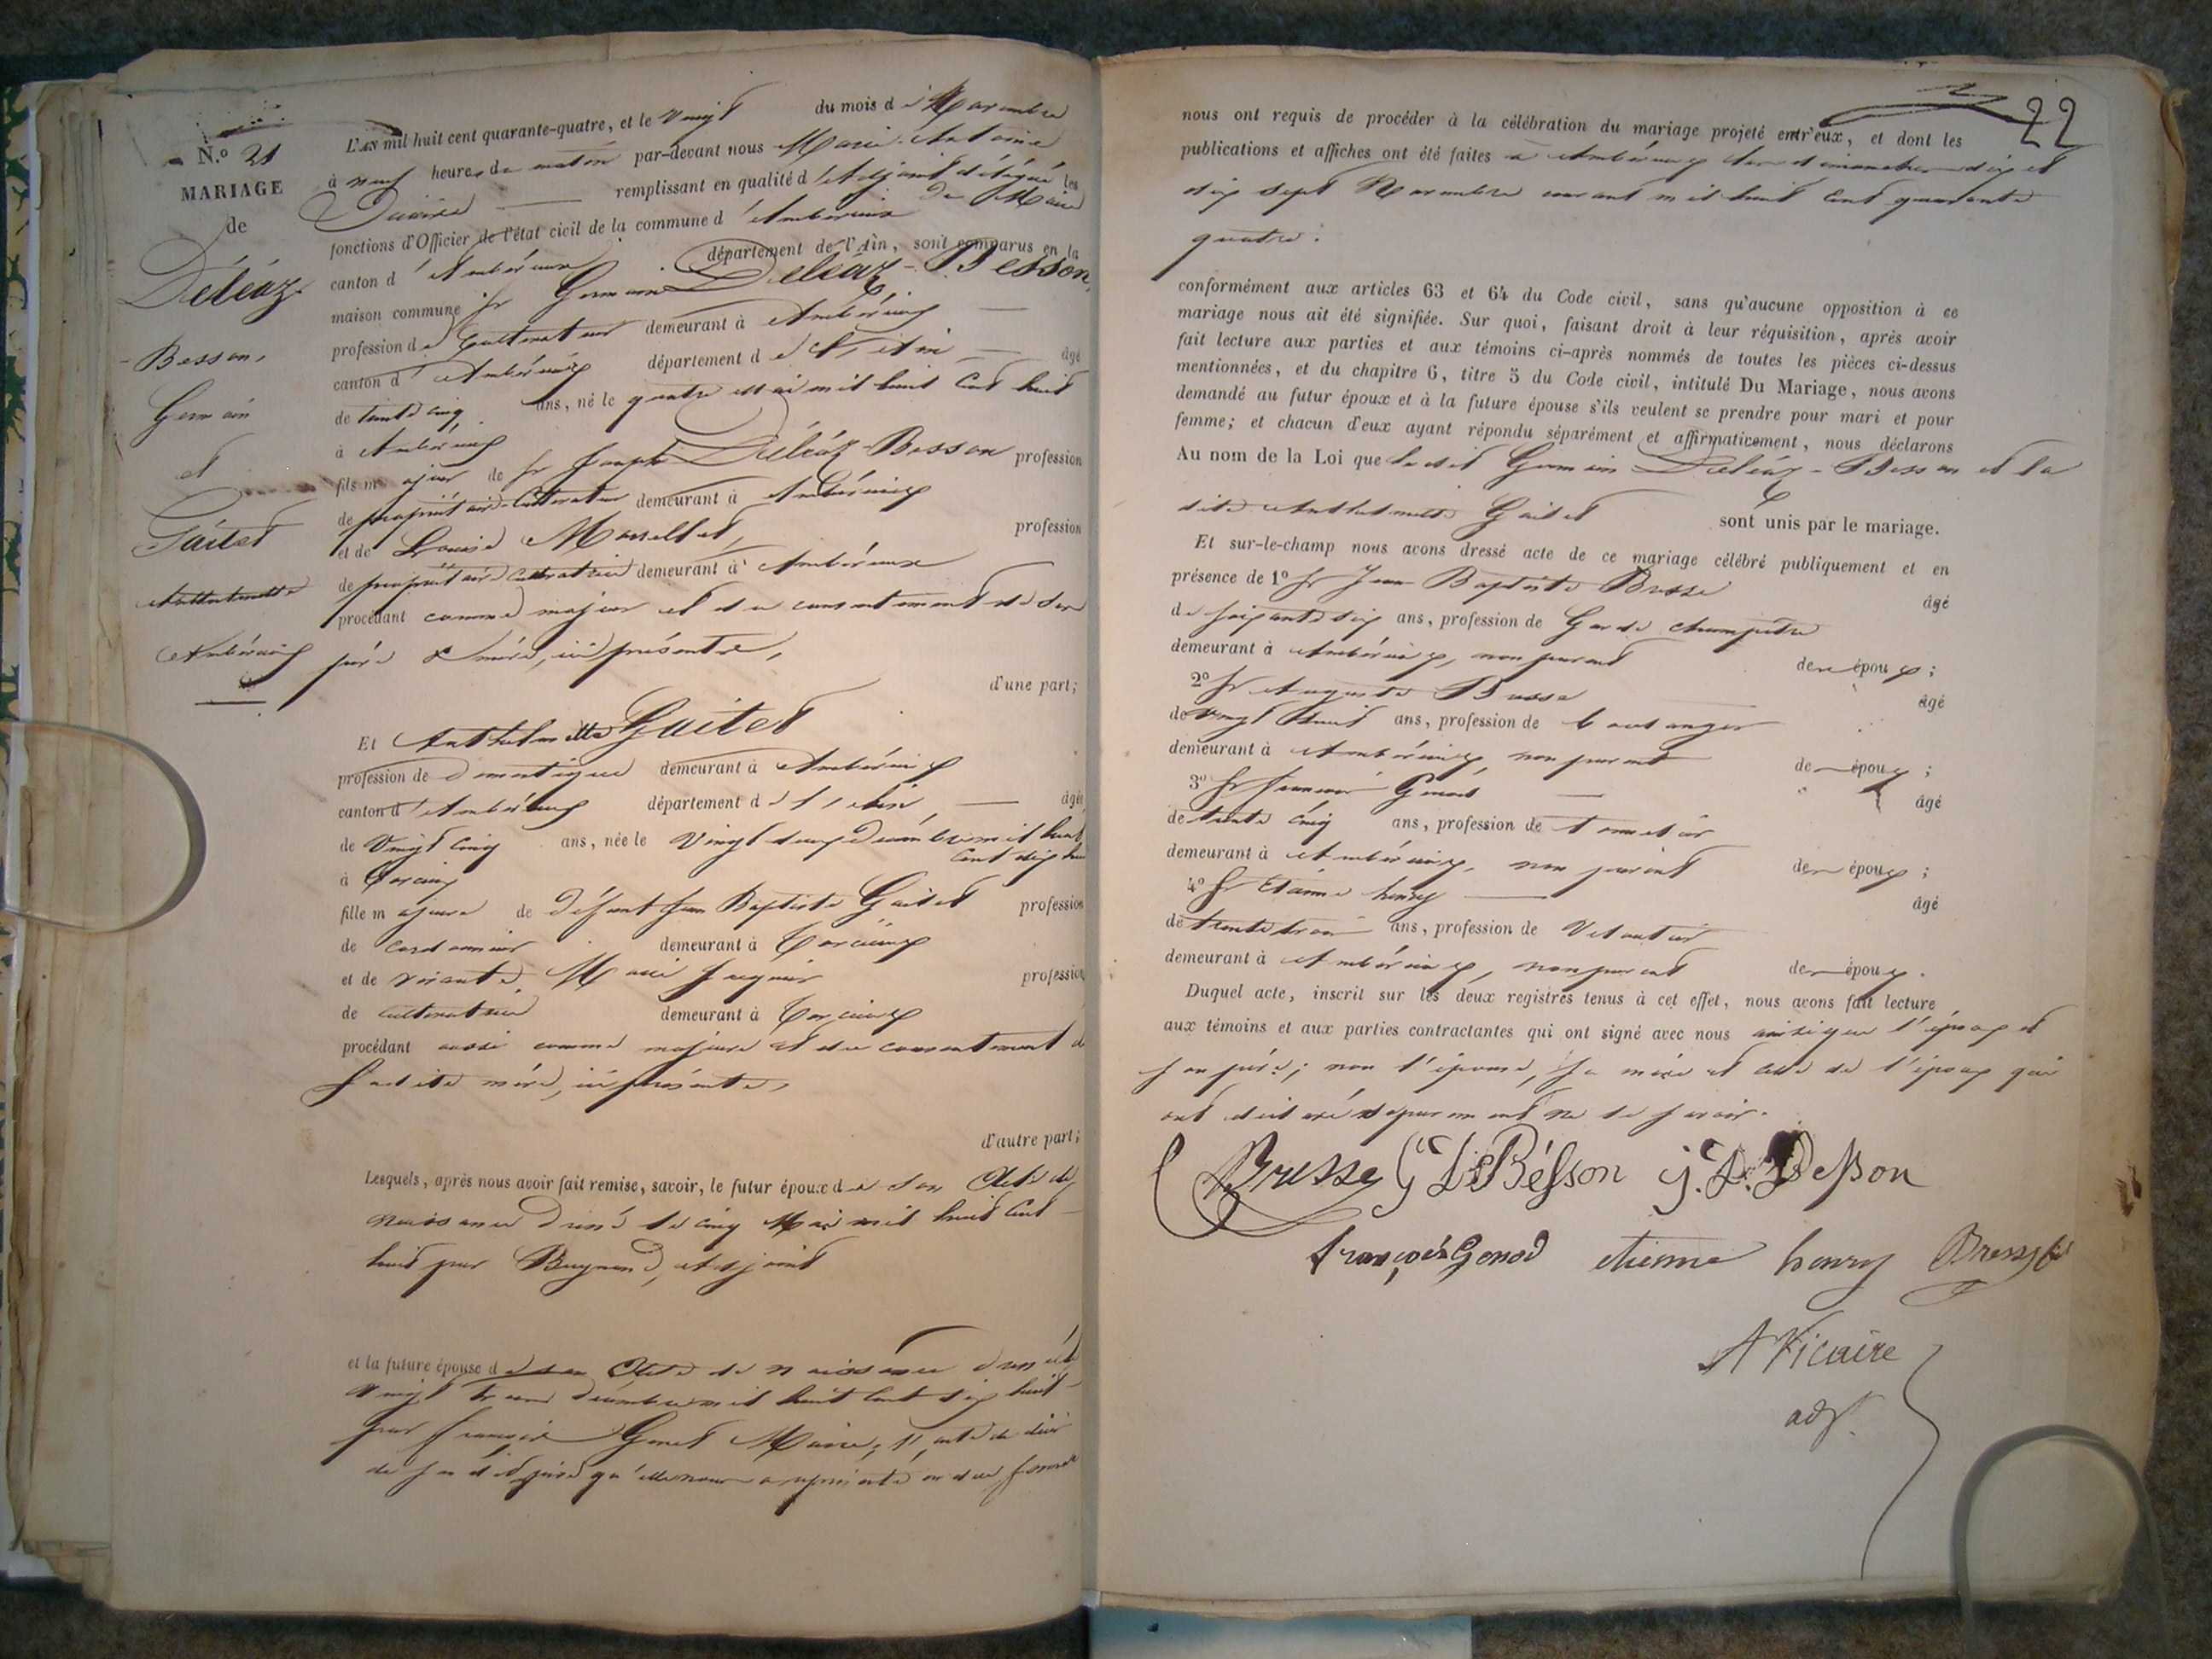 N.o 21
MARIAGE
de
Déléaz
Besson,
Germain
et
Guitet
Anthelmette
Ambérieux
L'an mil huit cent quarante-quatre, et le vingt du mois de Novembre
à neuf heures du matin par-devant nous Marie Antoine
remplissant en qualité d'Adjoint délégué les
du Maire
fonctions d'Officier de l'état civil de la commune d'Ambérieux
canton d'Ambérieux département de l'Ain, sont comparus en la
maison commune Sr Germain Déléaz-Besson,
profession de Cultivateur demeurant à Ambérieux
canton d'Ambérieux département de l'Ain âgé
de trente cinq ans, né le quatre Mai mil huit cent huit
à Ambérieux
fils majeur de Sr Joseph Déléaz-Besson profession
de propriétaire-Cultivateur demeurant à Ambérieux
et de Louise profession
de propriétaire Cultivatrice demeurant à Ambérieux
procédant comme majeur et du consentement de ses
père & mère, ici présents,
d'une part;
Et Anthelmette Guitet
profession de domestique demeurant à Ambérieux
canton d'Ambérieux département de l'Ain, âgée
de vingt cinq ans, née le vingt deux décembre mil huit
cent dix huit
à Torcieux
fille majeure de défunt Jean Baptiste Guitet profession
de cordonnier demeurant à Torcieux
et de vivante Marie profession
de cultivatrice demeurant à Torcieux
procédant aussi comme majeure et du consentement de
sa dite mère, ici présente,
d'autre part;
Lesquels, après nous avoir fait remise, savoir, le futur époux de son Acte de
naissance dressé le cinq Mai mil huit cent
huit par Adjoint
et la future épouse de son Acte de naissance dressé le
vingt trois décembre mil huit cent dix huit
par françois Maire; l'acte de décès
de son dit père qu'elle nous a représenté en due forme
22
nous ont requis de procéder à la célébration du mariage projeté entr'eux, et dont les
publications et affiches ont été faites à Ambérieux les dimanches dix et
dix sept Novembre courant mil huit cent quarante
quatre.
conformément aux articles 63 et 64 du Code civil, sans qu'aucune opposition à ce
mariage nous ait été signifiée. Sur quoi, faisant droit à leur réquisition, après avoir
fait lecture aux parties et aux témoins ci-après nommés de toutes les pièces ci-dessus
mentionnées, et du chapitre 6, titre 5 du Code civil, intitulé Du Mariage, nous avons
demandé au futur époux et à la future épouse s'ils veulent se prendre pour mari et pour
femme; et chacun d'eux ayant répondu séparément et affirmativement, nous déclarons
Au nom de la Loi que le dit Germain Déléaz-Besson et la
dite Anthelmette Guitet sont unis par le mariage.
Et sur-le-champ nous avons dressé acte de ce mariage célébré publiquement et en
présence de 1o Sr Jean Baptiste Bresse âgé
de soixante six ans, profession de Garde champêtre
demeurant à Ambérieux, non parent des époux;
2o Sr Auguste Bresse âgé
de vingt huit ans, profession de boulanger
demeurant à Ambérieux, non parent des époux;
3o Sr françois Genod âgé
de trente cinq ans, profession de
demeurant à Ambérieux, non parent des époux;
4o Sr Etienne henry âgé
de trente trois ans, profession de
demeurant à Ambérieux, non parent des époux.
Duquel acte, inscrit sur les deux registres tenus à cet effet, nous avons fait lecture
aux témoins et aux parties contractantes qui ont signé avec nous ainsi que l'époux et
son père; non l'épouse, sa mère et celle de l'époux qui
ont déclaré séparément ne le savoir.
Bresse G Dz Besson J. Dz Besson
françois Genod etienne henry Bresse
A Vicaire
adjt